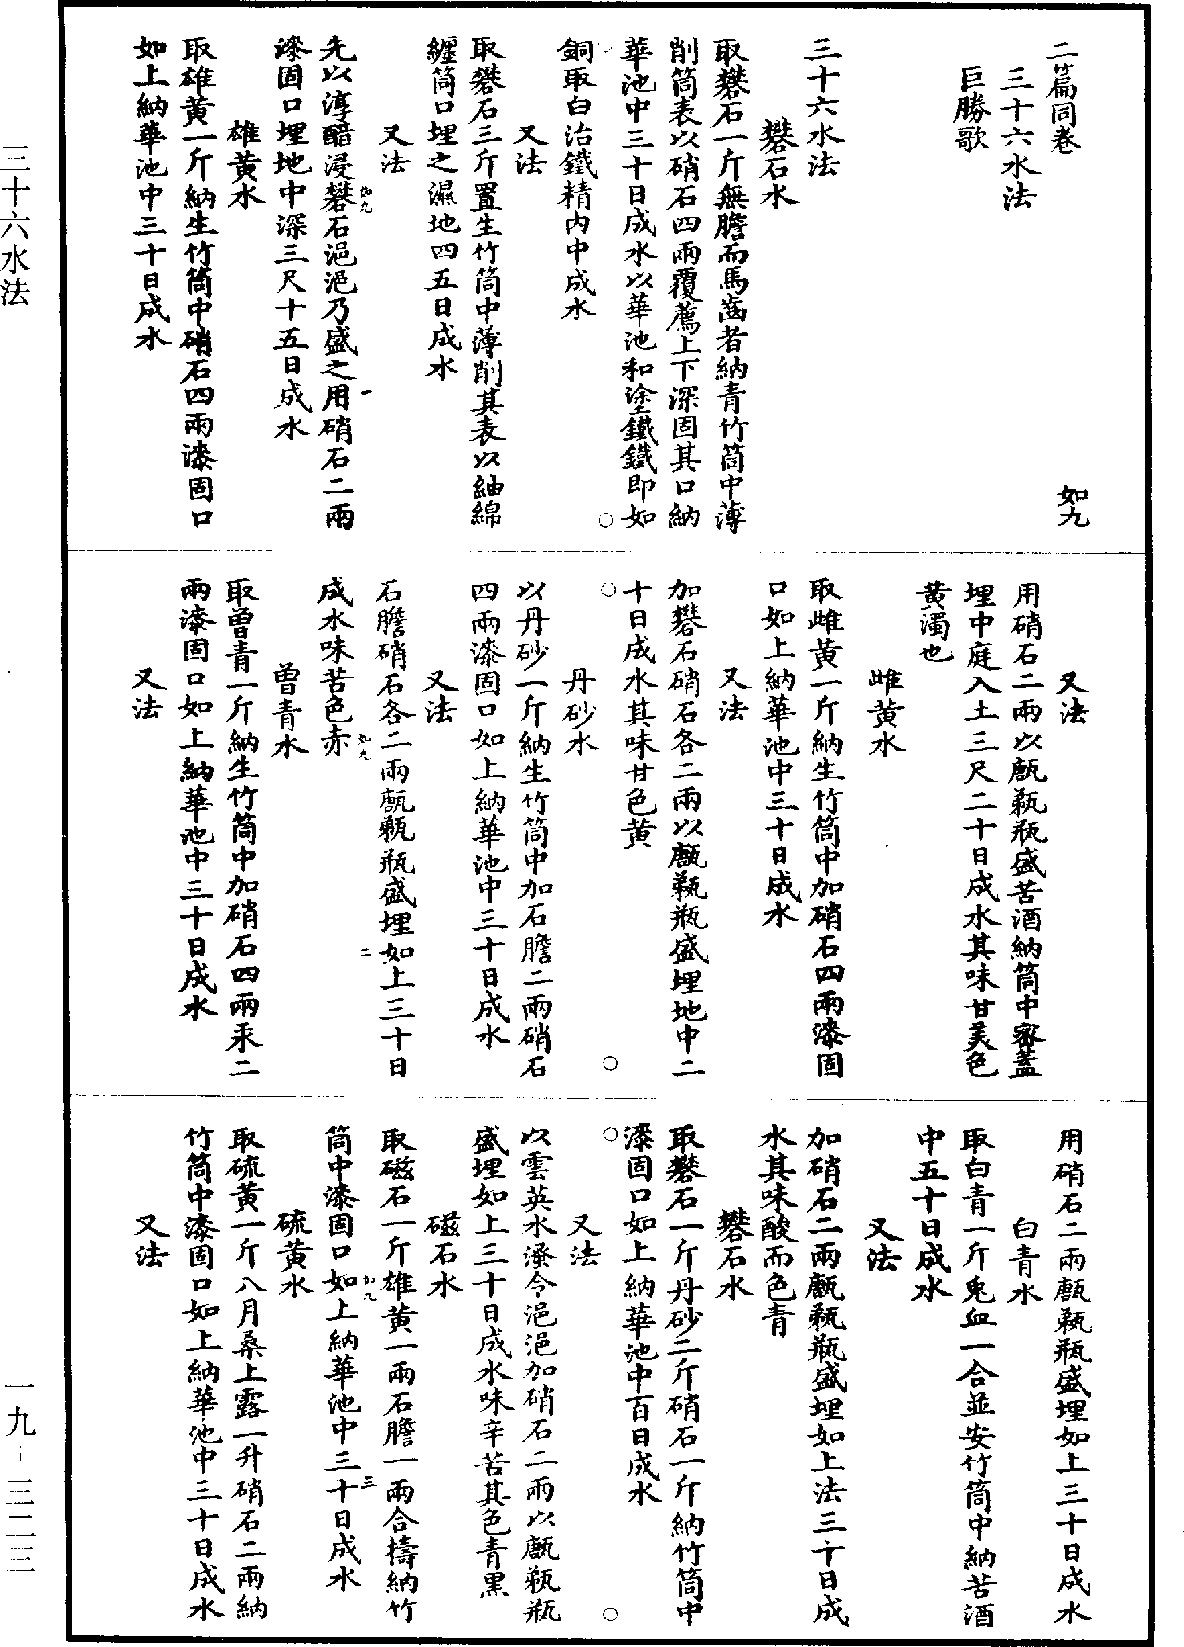 二篇同卷
如九
三十六水法
巨勝歌
三十六水法
礬石水
取礬石一斤無膽而馬齒者納青竹筒中薄
削筒表以硝石四兩覆薦上下深固其口納
華池中三十日成水以華池和塗鐵鐵即如
銅取白治鐵精內中成水
又法
取礬石三斤置生竹筒中薄削其表以紬綿
纏筒口埋之濕地四五日成水
又法
如九
一
先以淳醋浸礬石浥浥乃盛之用硝石二兩
漆固口埋地中深三尺十五日成水
雄黃水
取雄黃一斤納生竹筒中硝石四兩漆固口
如上納華池中三十日成水
又法
用硝石二兩以甒瓶盛苦酒納筒中密蓋
埋中庭入土三尺二十日成水其味甘美色
黃濁也
雌黃水
取雌黃一斤納生竹筒中加硝石四兩漆固
口如上納華池中三十日成水
又法
加礬石硝石各二兩以瓶盛埋地中二
十日成水其味甘色黃
丹砂水
以丹砂一斤納生竹筒中加石膽二兩硝石
四兩漆固口如上納華池中三十日成水
又法
石膽硝石各二兩瓶盛埋如上三十日
如九
二
成水味苦色赤
曾青水
取曾青一斤納生竹筒中加硝石四兩汞二
兩漆固口如上納華池中三十日成水
又法
用硝石二兩瓶盛埋如上三十日成水
白青水
取白青一斤兔血一合並安竹筒中納苦酒
中五十日成水
又法
加硝石二兩瓶盛埋如上法三十日成
水其味酸而色青
礬石水
取礬石一斤丹砂二斤硝石一斤納竹筒中
漆固口如上納華池中百日成水
又法
以雲英水溲令浥浥加硝石二兩以瓶
盛埋如上三十日成水味辛苦其色青黑
磁石水
取磁石一斤雄黃一兩石膽一兩合擣納竹
如九
三
筒中漆固口如上納華池中三十日成水
硫黃水
取硫黃一斤八月桑上露一升硝石二兩納
竹筒中漆固口如上納華池中三十日成水
又法
三十六水法
一九-三二三